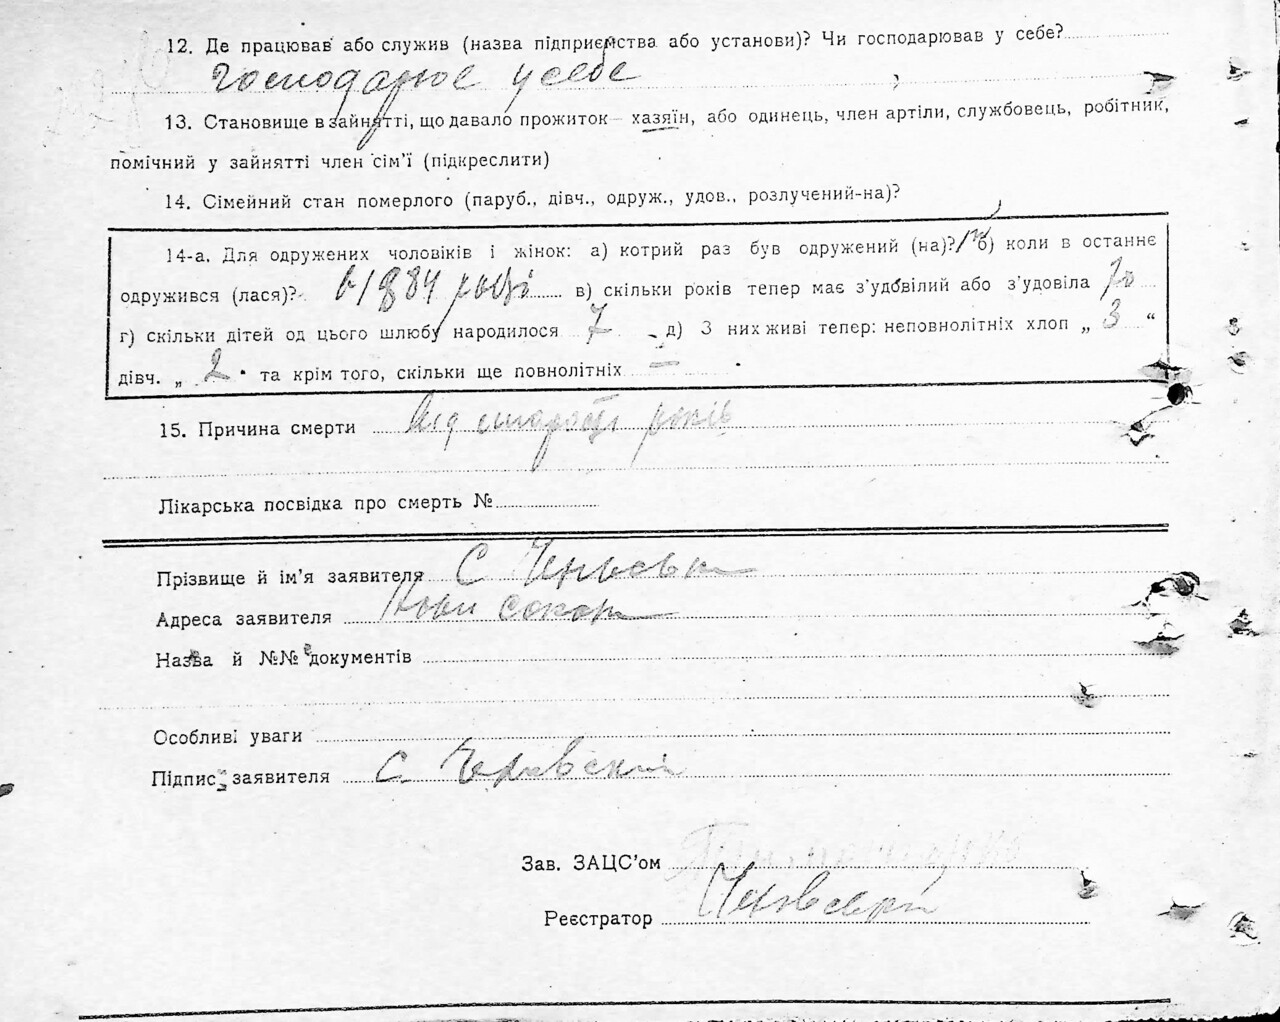 12. Де працював або служив (назва підприємства або установи)? Чи господарював у себе?
господарює у себе
13. Становище в зайнятті, що давало прожиток — хазяїн, або одинець, член артіли, службовець, робітник,
помічний у зайнятті член сім’ї (підкреслити)
14. Сімейний стан померлого (паруб., дівч., одруж., удов., розлучений-на)?
14-а. Для одружених чоловіків і жінок: а) котрий раз був одружений (на)? 1 б) коли в останнє
одружився (лася)? в 1884 році в) скільки років тепер має з’удовілий або з’удовіла 70
г) скільки дітей од цього шлюбу народилося 7 д) З них живі тепер: неповнолітніх хлоп „ 3 “
дівч. „ 2 “ та крім того, скільки ще повнолітніх —
15. Причина смерти Від старости років
Лікарська посвідка про смерть №
Прізвище й ім’я заявителя С
Адреса заявителя
Назва й №№ документів
Особливі уваги
Підпис заявителя С.
Зав. ЗАЦС’ом
Реєстратор